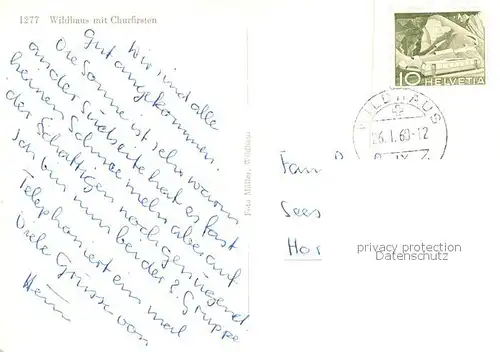 1277 Wildhaus mit Churfirsten
Wir sind alle
gut angekommen.
Die Sonne ist sehr warm
an der Südseite hat es fast
keinen Schnee mehr aber auf
der Schattigen noch genügend
Ich bin nun bei der 2. Gruppe
Telephoniert ein mal
Viele Grüsse von
Foto Müller, Wildhaus
10 HELVETIA
WILDHAUS
26.I.60-12
Fam
Sees
Hor
privacy protection
Datenschutz